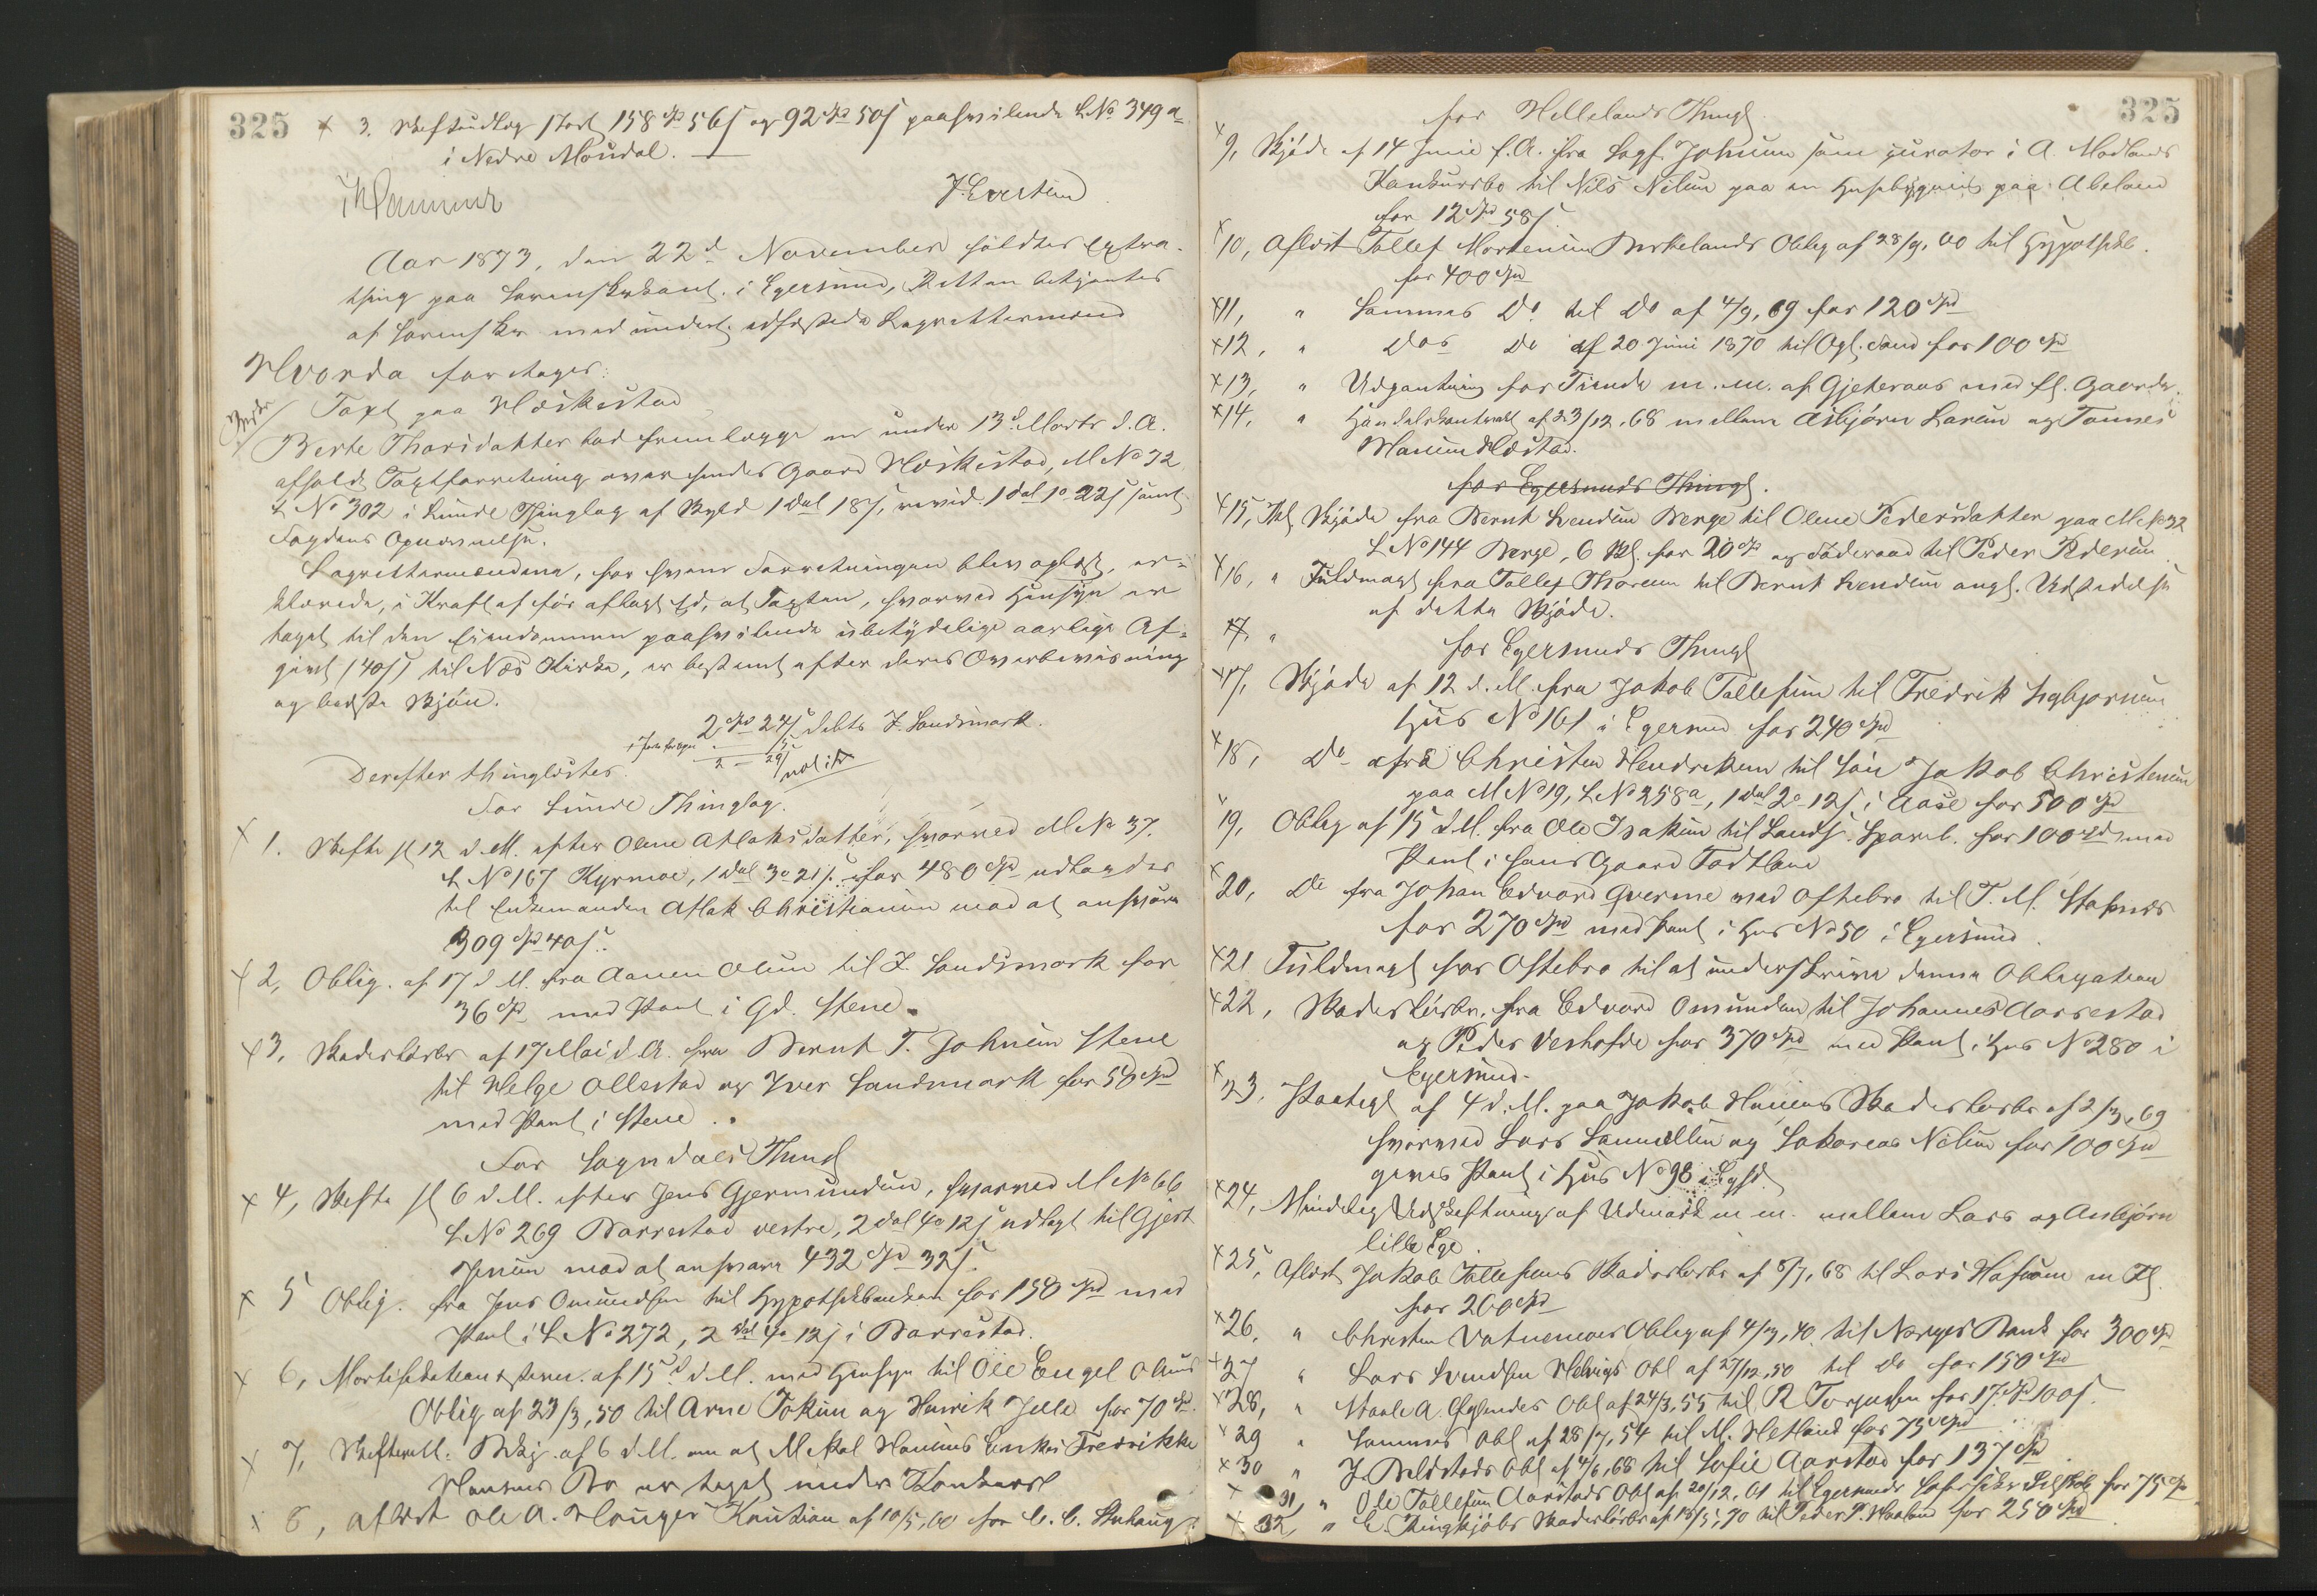 325
x 3. Skifteudlæg stort 158 Spd 56 s og 92 Spd 50 s paahvilende L No 349 a
i Nedre Moudal.
J. Evertsen
Aar 1873, den 22d November holdtes Extra-
thing paa Sorenskrkont. i Egersund, Retten betjentes
af Sorenskr. med undert. edfæstede Lagrettesmænd
Hvorda foretoges:
Taxt paa Hæskestad
Berte Thorsdatter lod fremlægge en under 13d Marts d. A.
afholdt Taxtforretning over hendes Gaard Hæskestad, M No 32
L No 302 i Lunde Thinglag af Skyld 1 Dal 18 s, revid. 1 dal 1 o 22 s samt
Fogdens Opnævnelse.
Lagrettesmændene, for hvem Forretningen blev oplæst, er-
klærede, i Kraft af før aflagt Ed, at Taxten, hvorved Hensyn er
taget til den Eiendommen paahvilende ubetydelige aarlige Af-
givt (40 s) til Næs Kirke, er bestemt efter deres Overbevisning
og bedste Skjøn.
2 Spd 24 s debts J. Sandsmark.
2 — 29
Derefter thinglæstes:
For Lunde Thinglag.
x 1. Skifte sl 12 d. M. efter Olene Atlaksdatter, hvorved M No 37.
L No 167 Kyrmoe, 1 Dal 3 o 21 s. for 480 Spd udlagdes
til Enkemanden Atlak Christiansen mod at ansvare
309 Spd 40 s.
x 2, Oblig. af 17 d M. fra Aanen Olsen til J. Sandsmark for
36 Spd med Pant i Gd. Stene.
x 3, Skadesløsbr af 17 Mai d. A. fra Bernt T. Johnsen Stene
til Helge Ollestad og Iver Sandsmark for 50 Spd
med Pant i Stene.
For Sogndals Thingl
x 4, Skifte sl 6 d M. efter Jens Gjermundsen, hvorved M No 66
L No 269 Barrestad vestre, 2 dal 4 o 12 s udlagt til Gjert
Jensen mod at ansvare 432 Spd 32 s.
x 5 Oblig. fra Jens Omundsen til Hypothekbanken for 150 Spd med
Pant i L No 272, 2 Dal 4 o 12 s i Barrestad.
x 6, Mortifikationsstevn. af 15d d. M. med Hensyn til Ole Engel Olsens
Oblig af 23/3, 50 til Arne Tokum og Henrik Jelle for 70 Spd.
x 7, Skifterett. Bekj. af 6 d M. om at Mikal Hansens Enkes Fredrikke
Hansens Bo er taget under Konkurs
x 8, Aflæst Ole A. Hauges Kaution af 10/5, 60 for C. C. Puhaug.
325
for Hellelands Thingl.
x 9, Skjøde af 14 Juni f. A. fra Sagf. Johnsen som curator i A. Modlands
Konkursbo til Nils Nilsen paa en Husebygning paa Abeland
for 12 Spd 58 s.
x 10, Aflæst Tollef Mortensen Birkelands Oblig af 28/9, 60 til Hypothekb.
for 400 Spd
x 11, " Sammes Do til Do af 4/9, 69 for 120 Spd
x 12, " Dos Do af 20 Juni 1870 til Opl. Fond for 100 Spd
x 13, " Udpantning for Tiende m. m. af Gjeteraas med fl. Gaarde.
x 14, " Handelskontrakt af 23/12, 68 mellem Asbjørn Larsen og Tønnes
for Egersunds Thingl.
x 15, Thl Skjøde fra Bernt Svendsen Berge til Olene Pedersdatter paa M No 32
L No 144 Berge, 6 Skl for 20 Spd og Føderaad til Peder Pedersen
x 16, " Fuldmagt fra Tollef Thorsen til Bernt Svendsen angl. Udstedelse
af dette Skjøde.
17, "
for Egersunds Thingl
x 17, Skjøde af 12 d. M. fra Jakob Tollefsen til Fredrik Sigbjørnsen
Hus No 161 i Egersund for 240 Spd
x 18, Do fra Christen Hendriksen til Søn Jakob Christensen
paa M No 19, L No 258 a, 1 Dal 2 o 12 s i Aase for 500 Spd
19, Oblig af 15 d M. fra Ole Isaksen til Lands. Spareb. for 100 Spd med
Pant i hans Gaard Fodtland
x 20, Do fra Johan Edvard Qverme ved Oftebro til T. M. Stapnes
for 270 Spd med Pant i Hus No 50 i Egersund.
x 21 Fuldmagt for Oftebro til at underskrive denne Obligation
x 22, Skadesløsbr. fra Edvard Omundsen til Johannes Aarrestad
og Peder Veshovde for 370 Spd med Pant i Hus No 280 i
Egersund.
x 23, Paategn af 4 d. M. paa Jakob Hansens Skadesløsbr af 2/3, 69
hvorved Lars Samuelsen og Sakarias Nilsen for 100 Spd
gives Pant i Hus No 98 i Egsd
x 24, Mindelig Udskiftning af Udmark m m. mellem Lars og Asbjørn
lille Ege.
x 25, Aflæst Jakob Tollefsens Skadesløsbr af 8/7, 68 til Lars Hafsøen m Fl.
for 260 Spd
x 26, " Christen Vatnemoes Oblig af 4/3, 40. til Norges Bank for 300 Spd
x 27 " Lars Svendsen Helvigs Obl af 27/12, 50 til Do for 150 Spd
x 28, " Staale A. Obl af 24/3, 55 til R Torgersen for 17 Spd 100 s.
x 29 " Sammes Obl af 28/7, 54 til M. Hetland for 75 Spd
x 30 " J. Beldstads Obl af 4/6, 68 til Sofie Aarstad for 137 Spd
x 31, " Ole Tollefsen Aarstads Obl af 20/12, 61 til Egersunds Selskab for 75 Spd
x 32, " E. Ringkjøbs Skadesløsbr af 18/5, 70 til Peder P. for 250 Spd